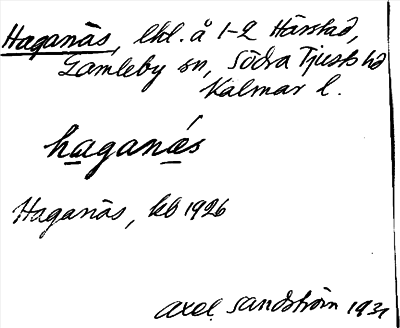 Haganäs, lhl. å 1-2 Hårstad,
Gamleby sn, Södra Tjusts hd
Kalmar l.
haganä́s
Haganäs, kb 1926
Axel Sandström 1931